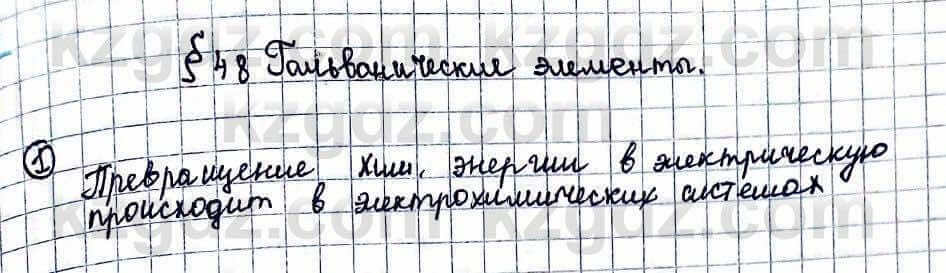 § 48 Гальванические элементы.
① Превращение хим. энергии в электрическую
происходит в электрохимических системах
kzgdz.com